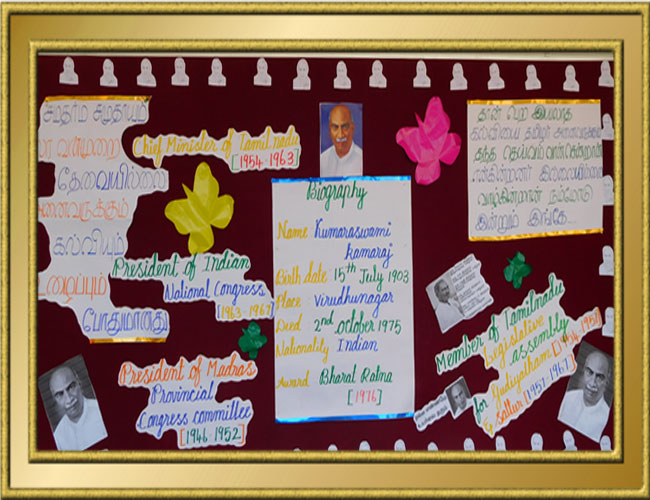 சமதர்ம சமுதாயம்
வன்முறை
தேவையில்லை
அனைவருக்கும்
கல்வியும்
உழைப்பும்
போதுமானது
Chief Minister of Tamilnadu
[1954-1963]
President of Indian
National Congress
[1963-1967]
President of Madras
Provincial
Congress committee
[1946-1952]
Biography
Name: Kumaraswami
Kamaraj
Birth date: 15th July 1903
Place: Virudhunagar
Died: 2nd October 1975
Nationality: Indian
Award: Bharat Ratna
[1976]
தான் பெற இயலாத
கல்வியை தமிழர் அனைவருக்கும்
தந்த தெய்வம்
வாழ்கின்றான் நம்மோடு
இன்றும் இங்கே...
Member of Tamilnadu
Legislative
assembly
for Gudiyatham [1954-1957]
& Sattur [1957-1967]